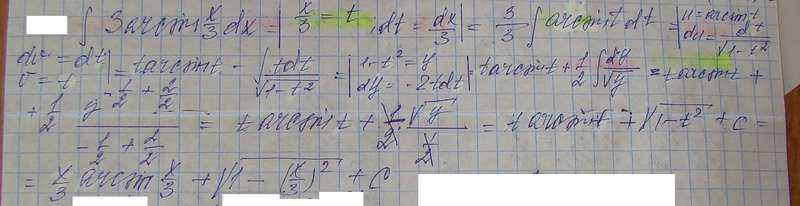 ∫ 3 arcsin x/3 dx = | x/3 = t ; dt = dx/3 | = 3/3 ∫ arcsin t dt = | u = arcsin t du = dt/√(1-t²)
dv = dt v = t | = t arcsin t - ∫ tdt/√(1-t²) = | 1-t² = y dy = -2tdt | = t arcsin t + 1/2 ∫ dy/√y = t arcsin t +
+ 1/2 y^(-1/2 + 2/2)/(-1/2 + 2/2) = t arcsin t + 1/2 · √y/(1/2) = t arcsin t + √(1-t²) + C =
= x/3 arcsin x/3 + √(1-(x/3)²) + C